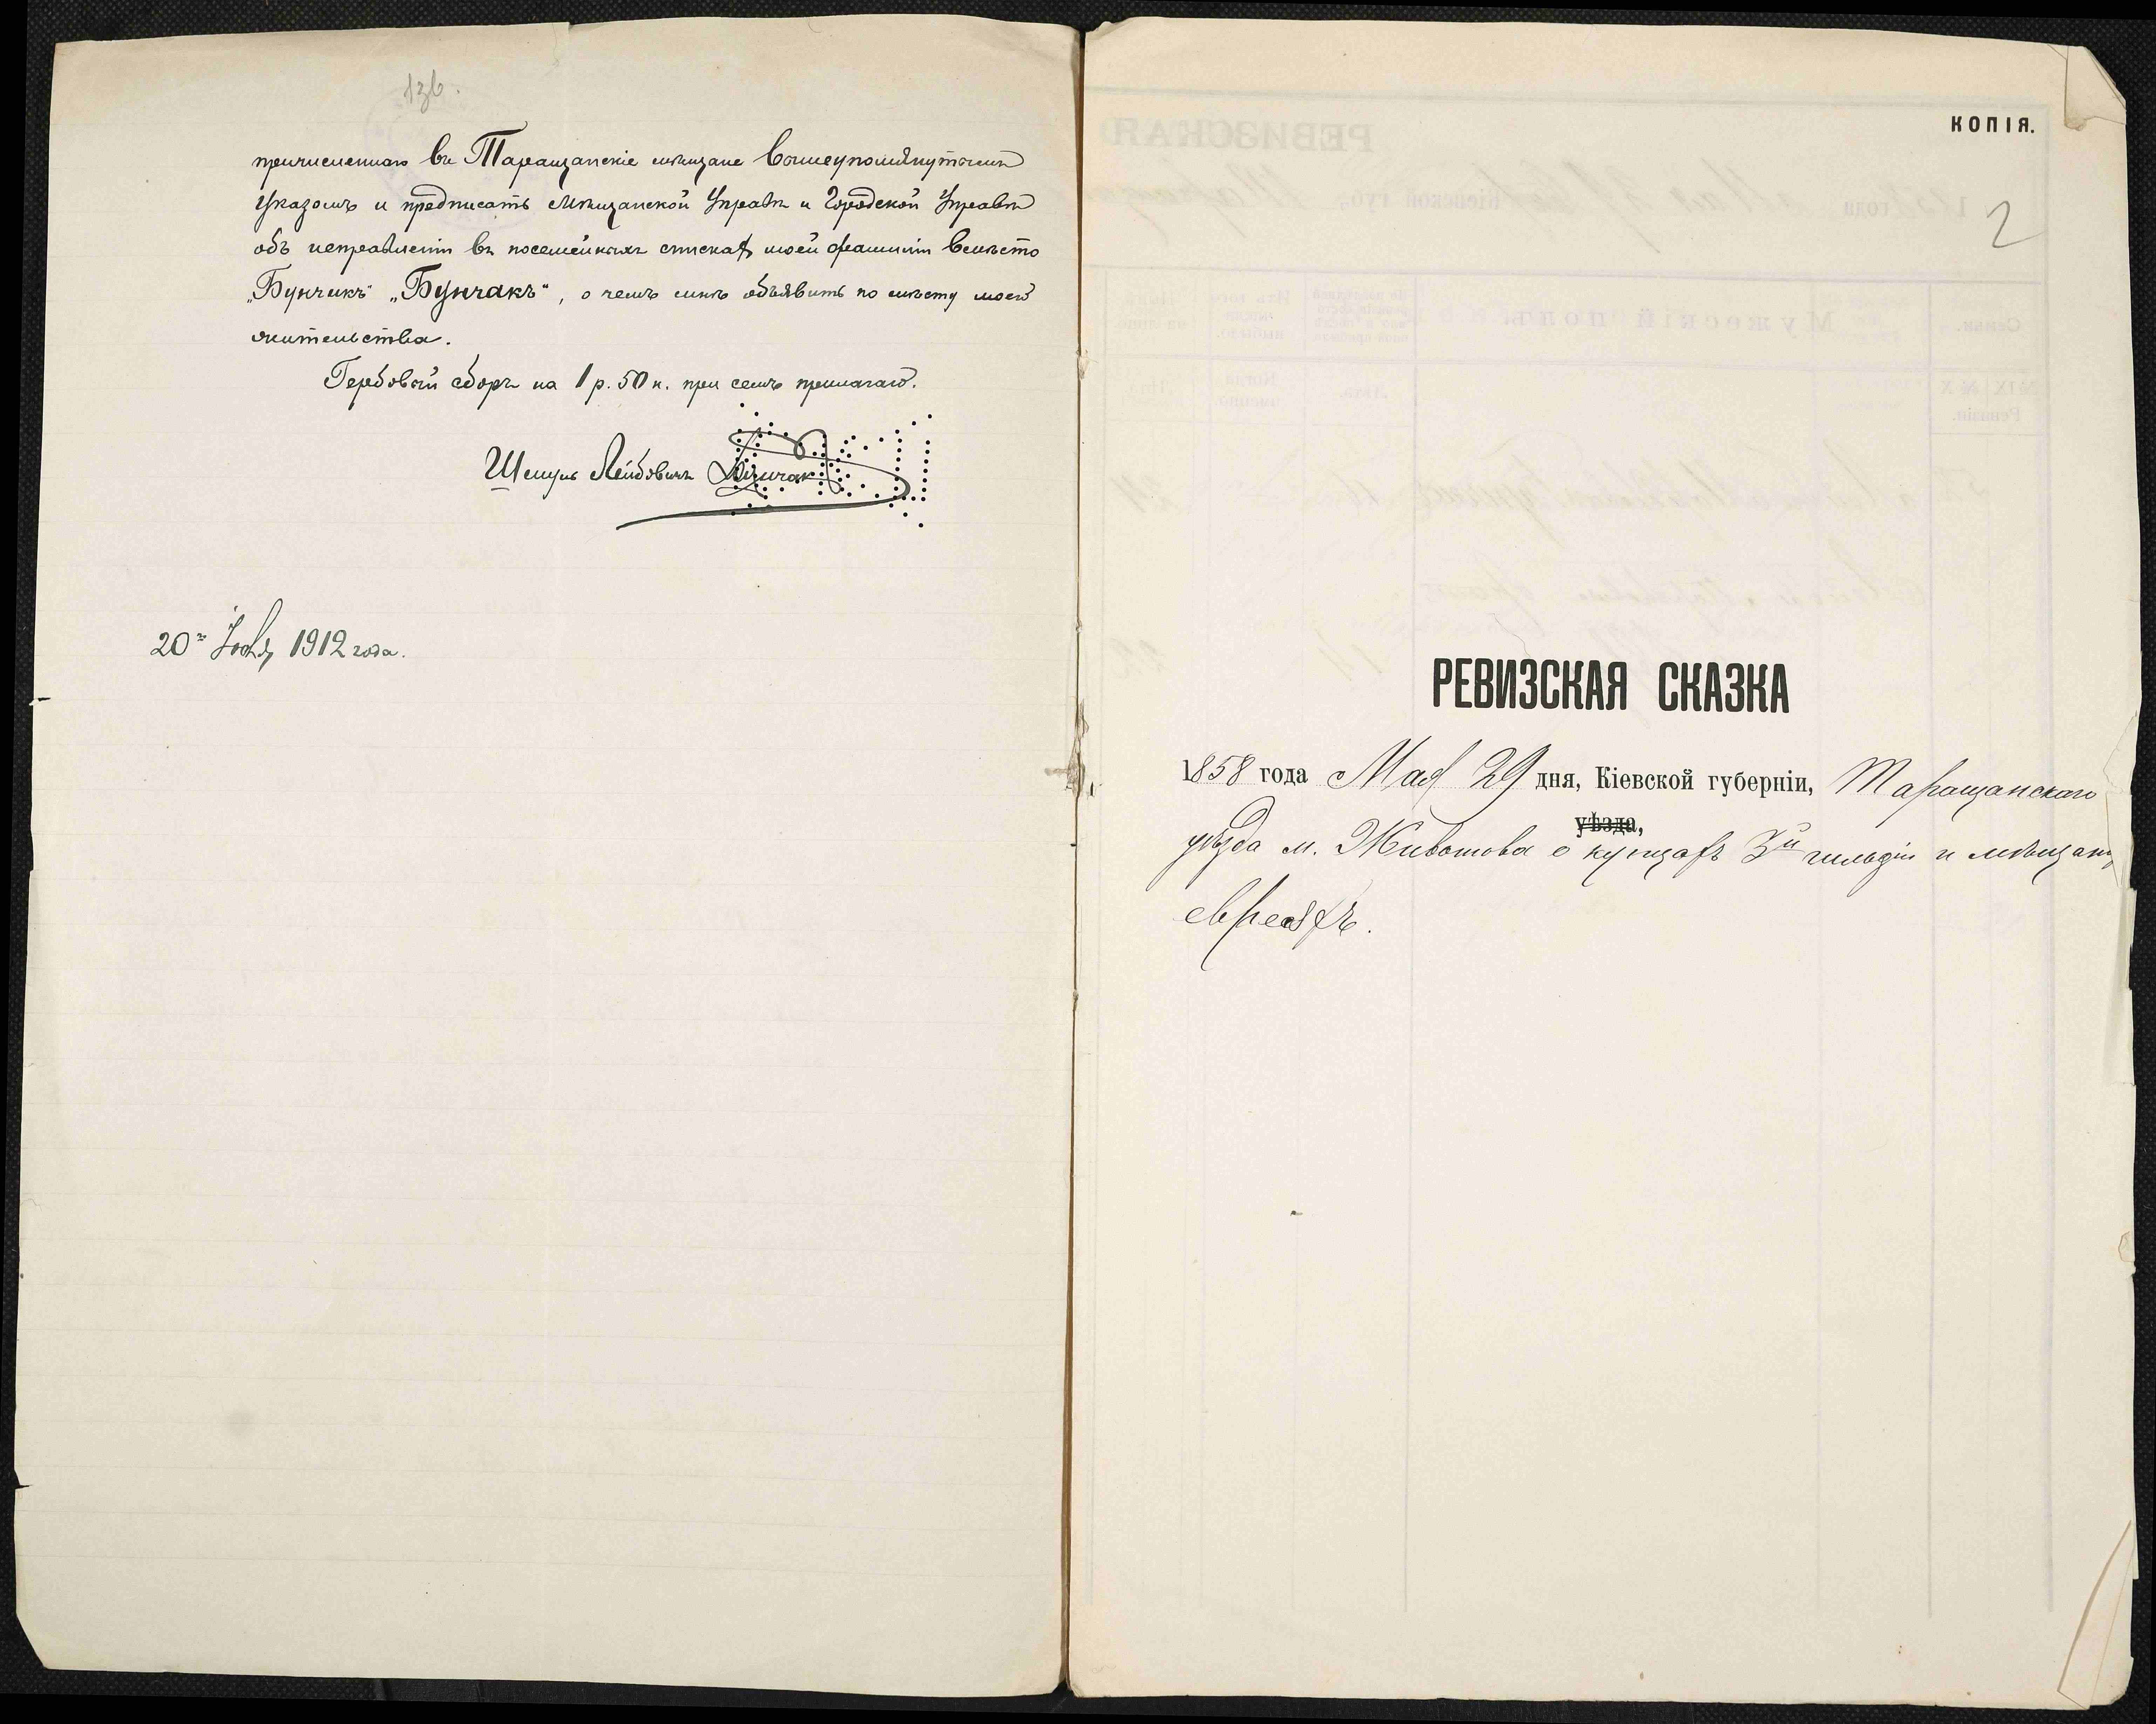 136.
причисленнаго въ Таращанскіе мѣщане вышеупомянутымъ
Указомъ и предписать Мѣщанской Управѣ и Городской Управѣ
объ исправленіи въ посемейныхъ спискахъ моей фамиліи вмѣсто
„Бунчикъ" „Бунчакъ", о чемъ мнѣ объявить по мѣсту моего
жительства.
Гербовый сборъ на 1 р. 50 к. при семъ прилагаю.
Шмуль Лейбовичъ Бунчак
1912 года.
КОПІЯ.
2
РЕВИЗСКАЯ СКАЗКА
1858 года Мая 29 дня, Кіевской губерніи, Таращанскаго
уѣзда,
уѣзда м. Животова о купцахъ 3й гильдіи и мѣщанах
евреяхъ.